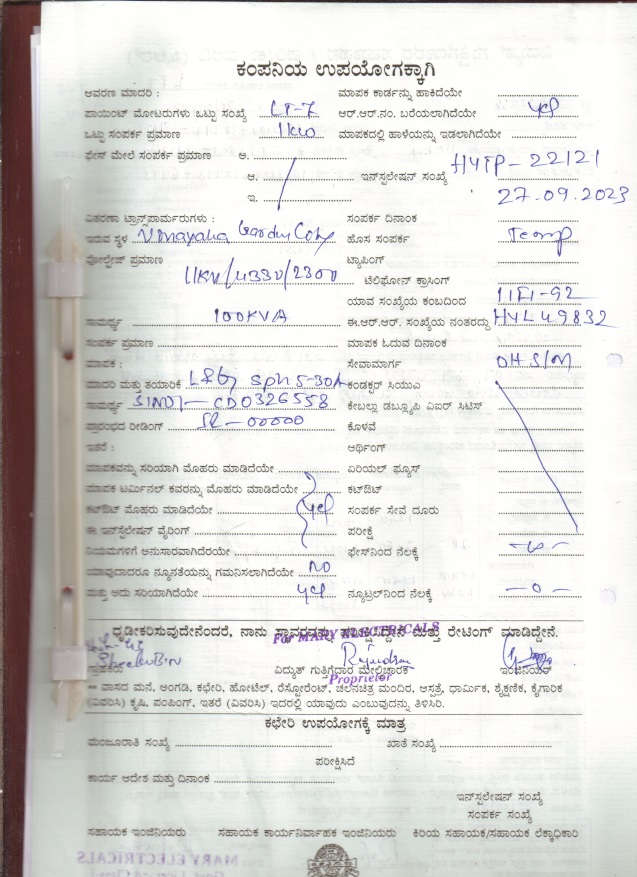 ಕಂಪನಿಯ ಉಪಯೋಗಕ್ಕಾಗಿ
ಆವರಣ ಮಾದರಿ : ಮಾಪಕ ಕಾರ್ಡನ್ನು ಹಾಕಿದೆಯೇ
ಪಾಯಿಂಟ್ ಮೋಟರುಗಳು ಒಟ್ಟು ಸಂಖ್ಯೆ LT-7 ಆರ್.ಆರ್.ನಂ. ಬರೆಯಲಾಗಿದೆಯೇ yes
ಒಟ್ಟು ಸಂಪರ್ಕ ಪ್ರಮಾಣ 1kw ಮಾಪಕದಲ್ಲಿ ಹಾಳೆಯನ್ನು ಇಡಲಾಗಿದೆಯೇ
ಫೇಸ್ ಮೇಲೆ ಸಂಪರ್ಕ ಪ್ರಮಾಣ ಅ.
ಆ. ಇನ್‌ಸ್ಟಲೇಷನ್ ಸಂಖ್ಯೆ H4TP-22121
ಇ. 27.09.2023
ವಿತರಣಾ ಟ್ರಾನ್ಸ್‌ಫಾರ್ಮರುಗಳು : ಸಂಪರ್ಕ ದಿನಾಂಕ
ಇರುವ ಸ್ಥಳ Vinayaka Garden City ಹೊಸ ಸಂಪರ್ಕ Temp
ವೋಲ್ಟೇಜ್ ಪ್ರಮಾಣ ಟ್ಯಾಪಿಂಗ್
11KV/4330/2300 ಟೆಲಿಫೋನ್ ಕ್ರಾಸಿಂಗ್
ಯಾವ ಸಂಖ್ಯೆಯ ಕಂಬದಿಂದ 11F1-92
ಸಾಮರ್ಥ್ಯ 100KVA ಈ.ಆರ್.ಆರ್. ಸಂಖ್ಯೆಯ ನಂತರದ್ದು H4L49832
ಸಂಪರ್ಕ ಪ್ರಮಾಣ ಮಾಪಕ ಓದುವ ದಿನಾಂಕ
ಮಾಪಕ : ಸೇವಾಮಾರ್ಗ OH S/M
ಮಾದರಿ ಮತ್ತು ತಯಾರಿಕೆ L&G SPh 5-30A ಕಂಡಕ್ಟರ್ ಸಿಯುಎ
ಸಾಮರ್ಥ್ಯ SINO1-CD0326558 ಕೇಬಲ್ಲು ಡಬ್ಲ್ಯೂಪಿ ವಿಐರ್ ಸಿಟಿಸ್
ಪ್ರಾರಂಭದ ರೀಡಿಂಗ್ IR-00000 ಕೊಳವೆ
ಇತರೆ : ಅರ್ಥಿಂಗ್
ಮಾಪಕವನ್ನು ಸರಿಯಾಗಿ ಮೊಹರು ಮಾಡಿದೆಯೇ ಏರಿಯಲ್ ಫ್ಯೂಸ್
ಮಾಪಕ ಟರ್ಮಿನಲ್ ಕವರನ್ನು ಮೊಹರು ಮಾಡಿದೆಯೇ ಕಟ್‌ಔಟ್
ಕಟ್‌ಔಟ್ ಮೊಹರು ಮಾಡಿದೆಯೇ yes ಸಂಪರ್ಕ ಸೇವೆ ದೂರು
ಈ ಇನ್‌ಸ್ಟಲೇಷನ್ ವೈರಿಂಗ್ ಪರೀಕ್ಷೆ
ನಿಯಮಗಳಿಗೆ ಅನುಸಾರವಾಗಿದೆರೆಯೇ ಫೇಸ್‌ನಿಂದ ನೆಲಕ್ಕೆ -∞-
ಯಾವುದಾದರೂ ನ್ಯೂನತೆಯನ್ನು ಗಮನಿಸಲಾಗಿದೆಯೇ NO
ಮತ್ತು ಅದು ಸರಿಯಾಗಿದೆಯೇ yes ನ್ಯೂಟ್ರಲ್‌ನಿಂದ ನೆಲಕ್ಕೆ -0-
ದೃಢೀಕರಿಸುವುದೇನೆಂದರೆ, ನಾನು ಸ್ಥಾವರವನ್ನು ಪರೀಕ್ಷಿಸಿದ್ದೇನೆ ಮತ್ತು ರೇಟಿಂಗ್ ಮಾಡಿದ್ದೇನೆ.
For MARY ELECTRICALS
Rajendran
ವಿದ್ಯುತ್ ಗುತ್ತಿಗೆದಾರ ಮೇಲ್ವಿಚಾರಕ ಇಂಜಿನಿಯರ್
Proprietor
– ವಾಸದ ಮನೆ, ಅಂಗಡಿ, ಕಛೇರಿ, ಹೋಟೆಲ್, ರೆಸ್ಟೋರೆಂಟ್, ಚಲನಚಿತ್ರ ಮಂದಿರ, ಆಸ್ಪತ್ರೆ, ಧಾರ್ಮಿಕ, ಶೈಕ್ಷಣಿಕ, ಕೈಗಾರಿಕ
(ವಿವರಿಸಿ) ಕೃಷಿ, ಪಂಪಿಂಗ್, ಇತರೆ (ವಿವರಿಸಿ) ಇದರಲ್ಲಿ ಯಾವುದು ಎಂಬುವುದನ್ನು ತಿಳಿಸಿರಿ.
ಕಛೇರಿ ಉಪಯೋಗಕ್ಕೆ ಮಾತ್ರ
ಮಂಜೂರಾತಿ ಸಂಖ್ಯೆ ಖಾತೆ ಸಂಖ್ಯೆ
ಪರೀಕ್ಷಿಸಿದೆ
ಕಾರ್ಯ ಆದೇಶ ಮತ್ತು ದಿನಾಂಕ
ಇನ್‌ಸ್ಟಲೇಷನ್ ಸಂಖ್ಯೆ
ಸಂಪರ್ಕ ಸಂಖ್ಯೆ
ಸಹಾಯಕ ಇಂಜಿನಿಯರು ಸಹಾಯಕ ಕಾರ್ಯನಿರ್ವಾಹಕ ಇಂಜಿನಿಯರು ಕಿರಿಯ ಸಹಾಯಕ/ಸಹಾಯಕ ಲೆಕ್ಕಾಧಿಕಾರಿ